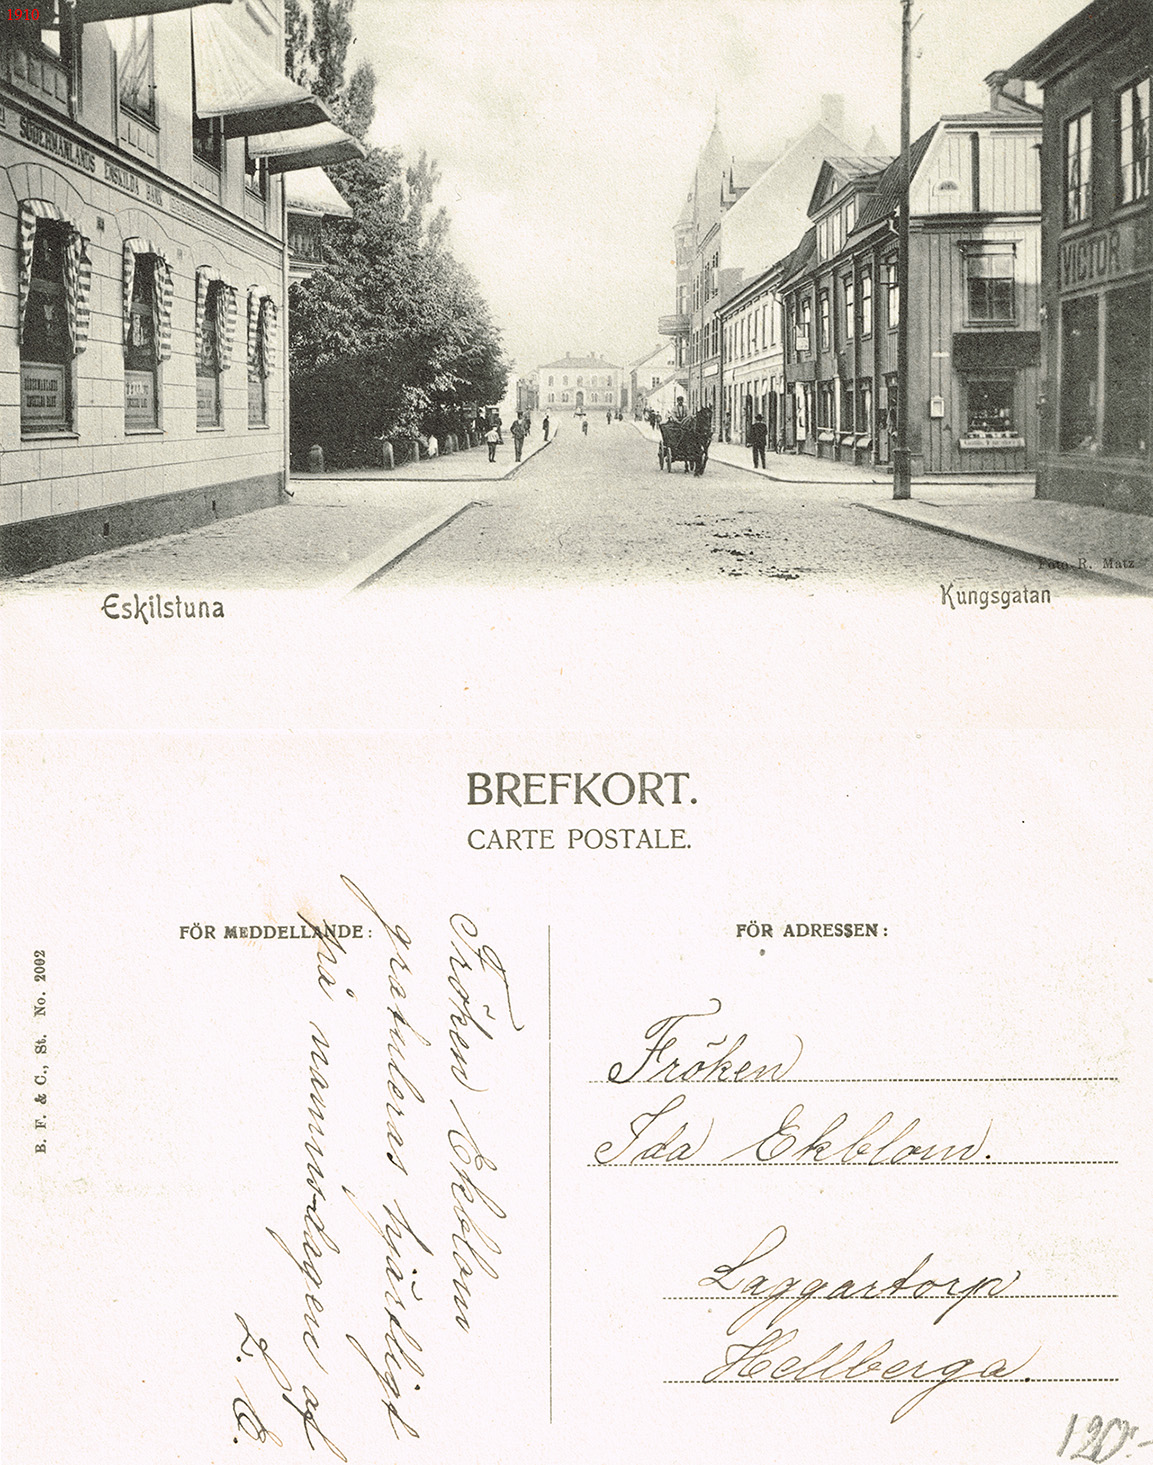 1910
SÖDERMANLANDS ENSKILDA BANK
SÖDERMANLANDS
ENSKILDA BANK
VICTOR
Foto. R. Matz
Eskilstuna
Kungsgatan
BREFKORT.
CARTE POSTALE.
FÖR MEDDELLANDE:
FÖR ADRESSEN:
B. F. & C., St. No. 2002
Fröken Ekblom
gratuleras hjärtligt
på namnsdagen af
E.
Fröken
Ida Ekblom.
Laggartorp
Hellberga.
120:-